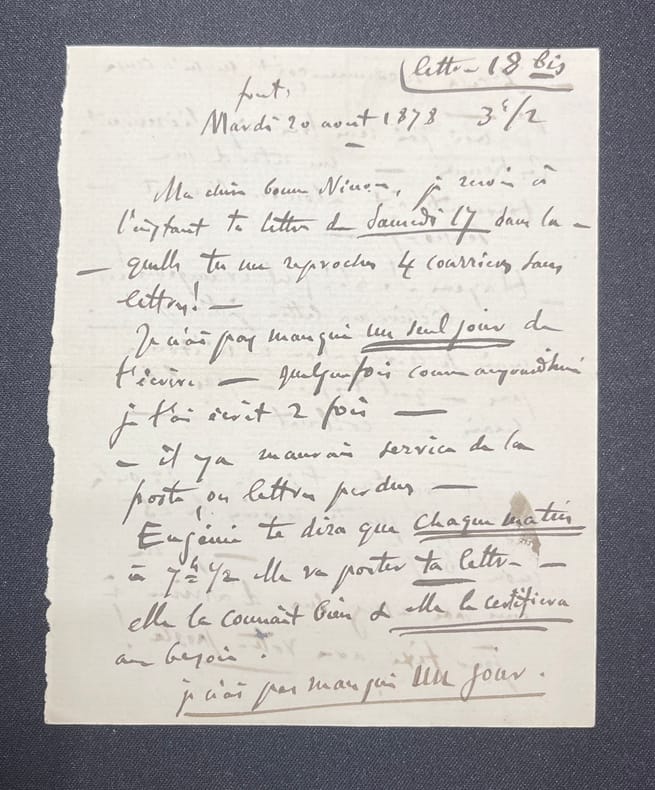 lettre 18 bis
Mardi 20 aout 1878 3h/2
Ma chère bonne Ninon, je reçois à
l'instant ta lettre de Samedi 17 dans la-
quelle tu me reproches 4 courriers sans
lettres! —
Je n'ai pas manqué un seul jour de
t'écrire — quelquefois comme aujourd'hui
je t'ai écrit 2 fois —
— il y a mauvais service de la
poste, ou lettres perdues —
Eugénie te dira que chaque matin
à 7h 1/2 elle va porter ta lettre —
elle la connait bien & elle le certifiera
au besoin !
je n'ai pas manqué un jour.